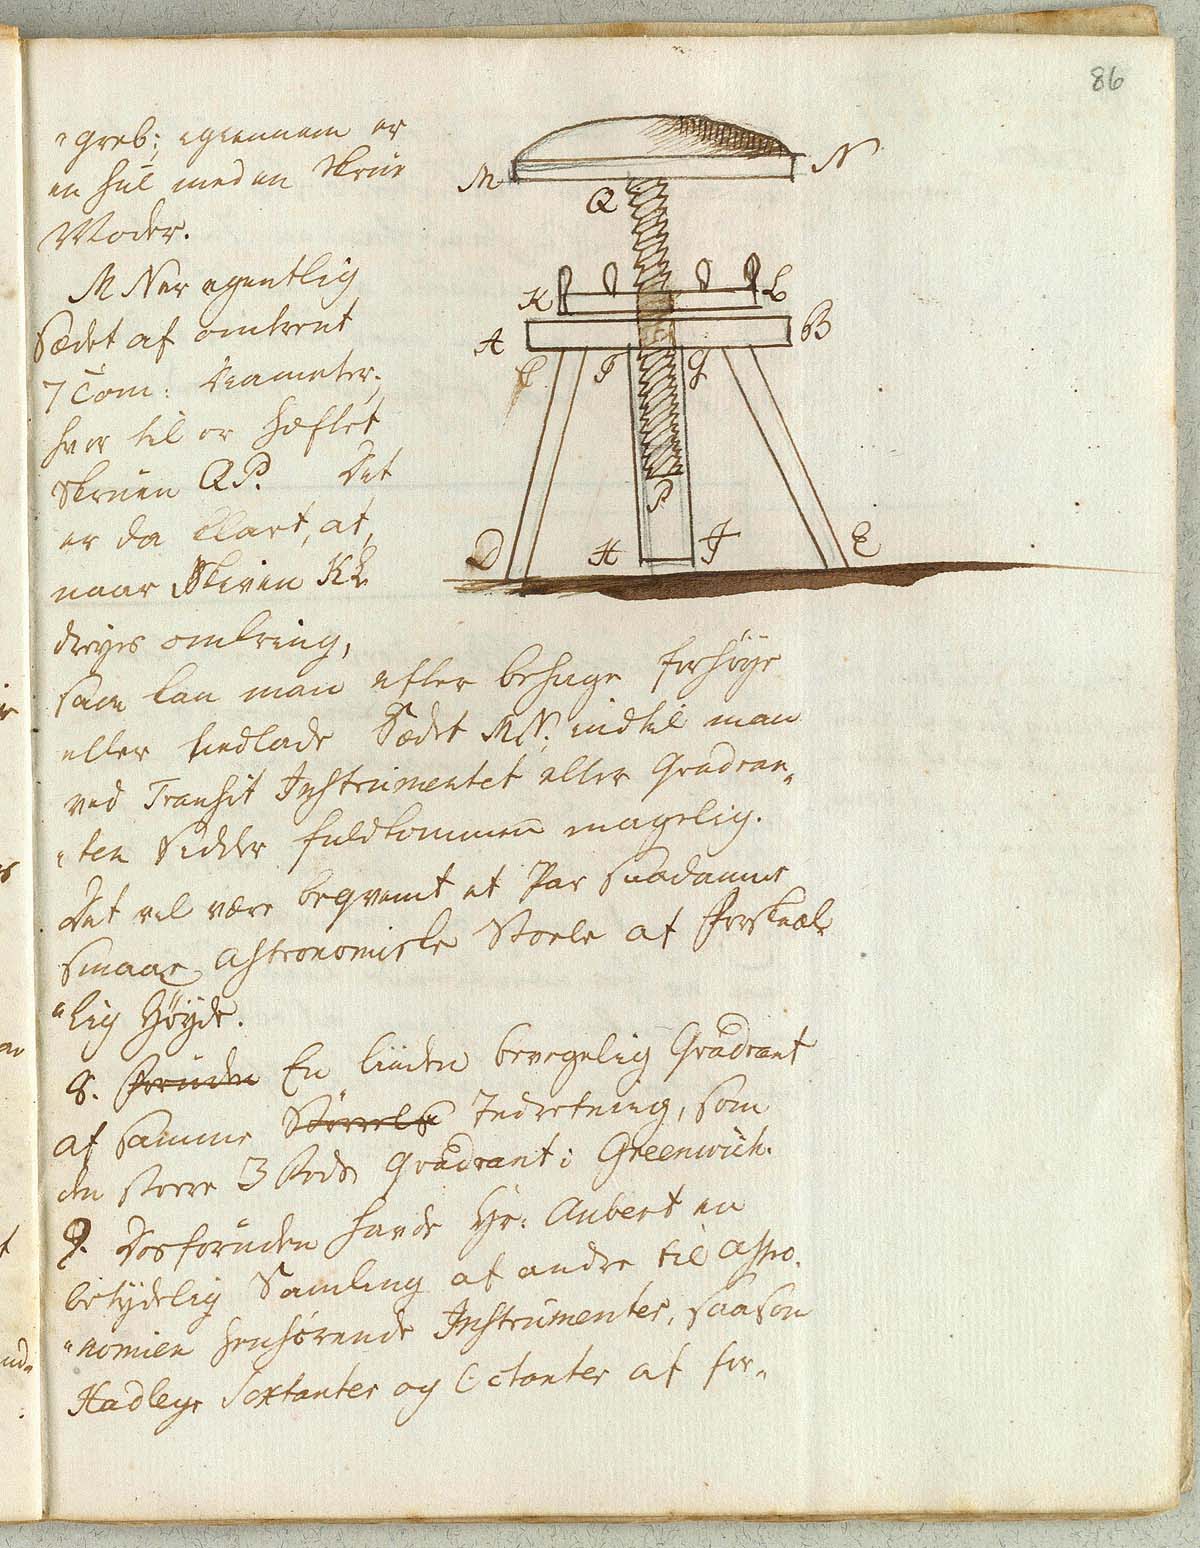 86
"greb; igiennem er
en hul med en Skrue
Moder.
MN er egentlig
Sædet af omtrent
7 Tom: Diameter,
hvor til er hæftet
Skruen QP. Det
er da klart, at,
naar Skiven KL
dreyes omkring,
saa kan man efter behage forhøye
eller nedlade Sædet MN, indtil man
ved Transit Instrumentet eller Qvadran„
„ten sidder fuldkommen magelig.
Det vil være beqvemt et Par saadanne
smaae Astronomiske Stoele af forskæl„
„lig Høyde.
8. Foruden En liiden bevegelig Qvadrant
af samme Störrelse Indretning, som
den større 3 Fods Qvadrant i Greenwich.
9. Desforuden havde Hr: Aubert en
betydelig Samling af andre til Astro„
„nomien henhørende Instrumenter, saasom
Hadleys Sextanter og Octanter af for„
M
N
Q
K
L
A
B
C
F
G
P
D
H
I
E